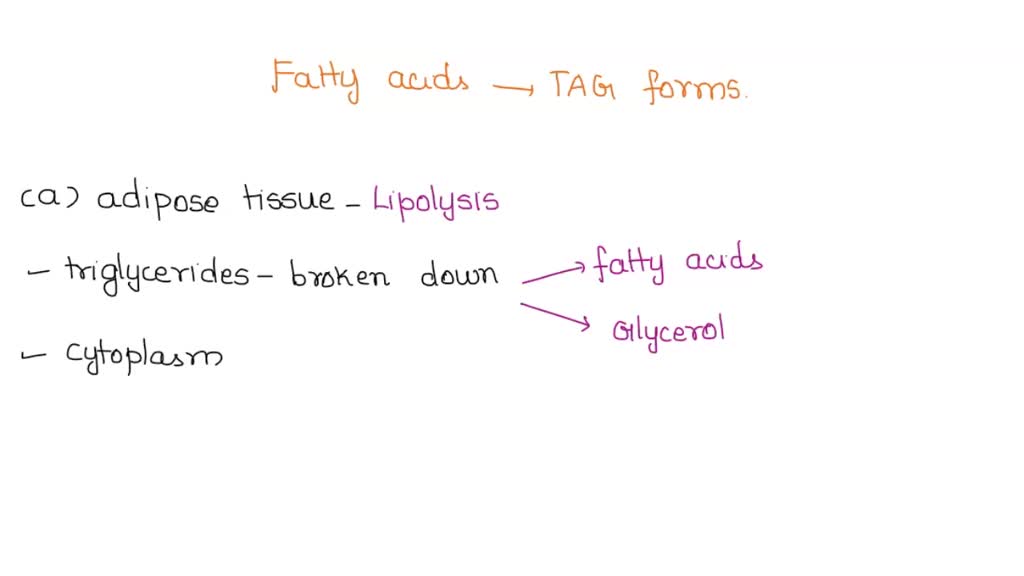 Fatty acids → TAG forms.
(a) adipose tissue - Lipolysis
- triglycerides - broken down → fatty acids
→ Glycerol
- cytoplasm